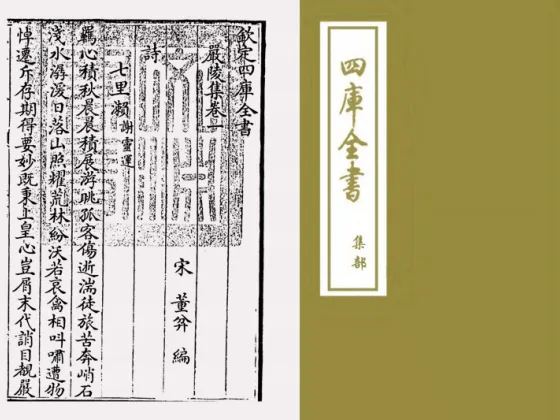 欽定四庫全書
嚴陵集卷一
宋 董弅 編
詩
七里瀨 謝靈運
羈心積秋晨晨積展游眺孤客傷逝湍徒旅苦奔峭石
淺水潺湲日落山照耀荒林紛沃若哀禽相叫嘯遭物
悼遷斥存期得要妙既秉上皇心豈屑末代誚目覩嚴
四庫全書
集部